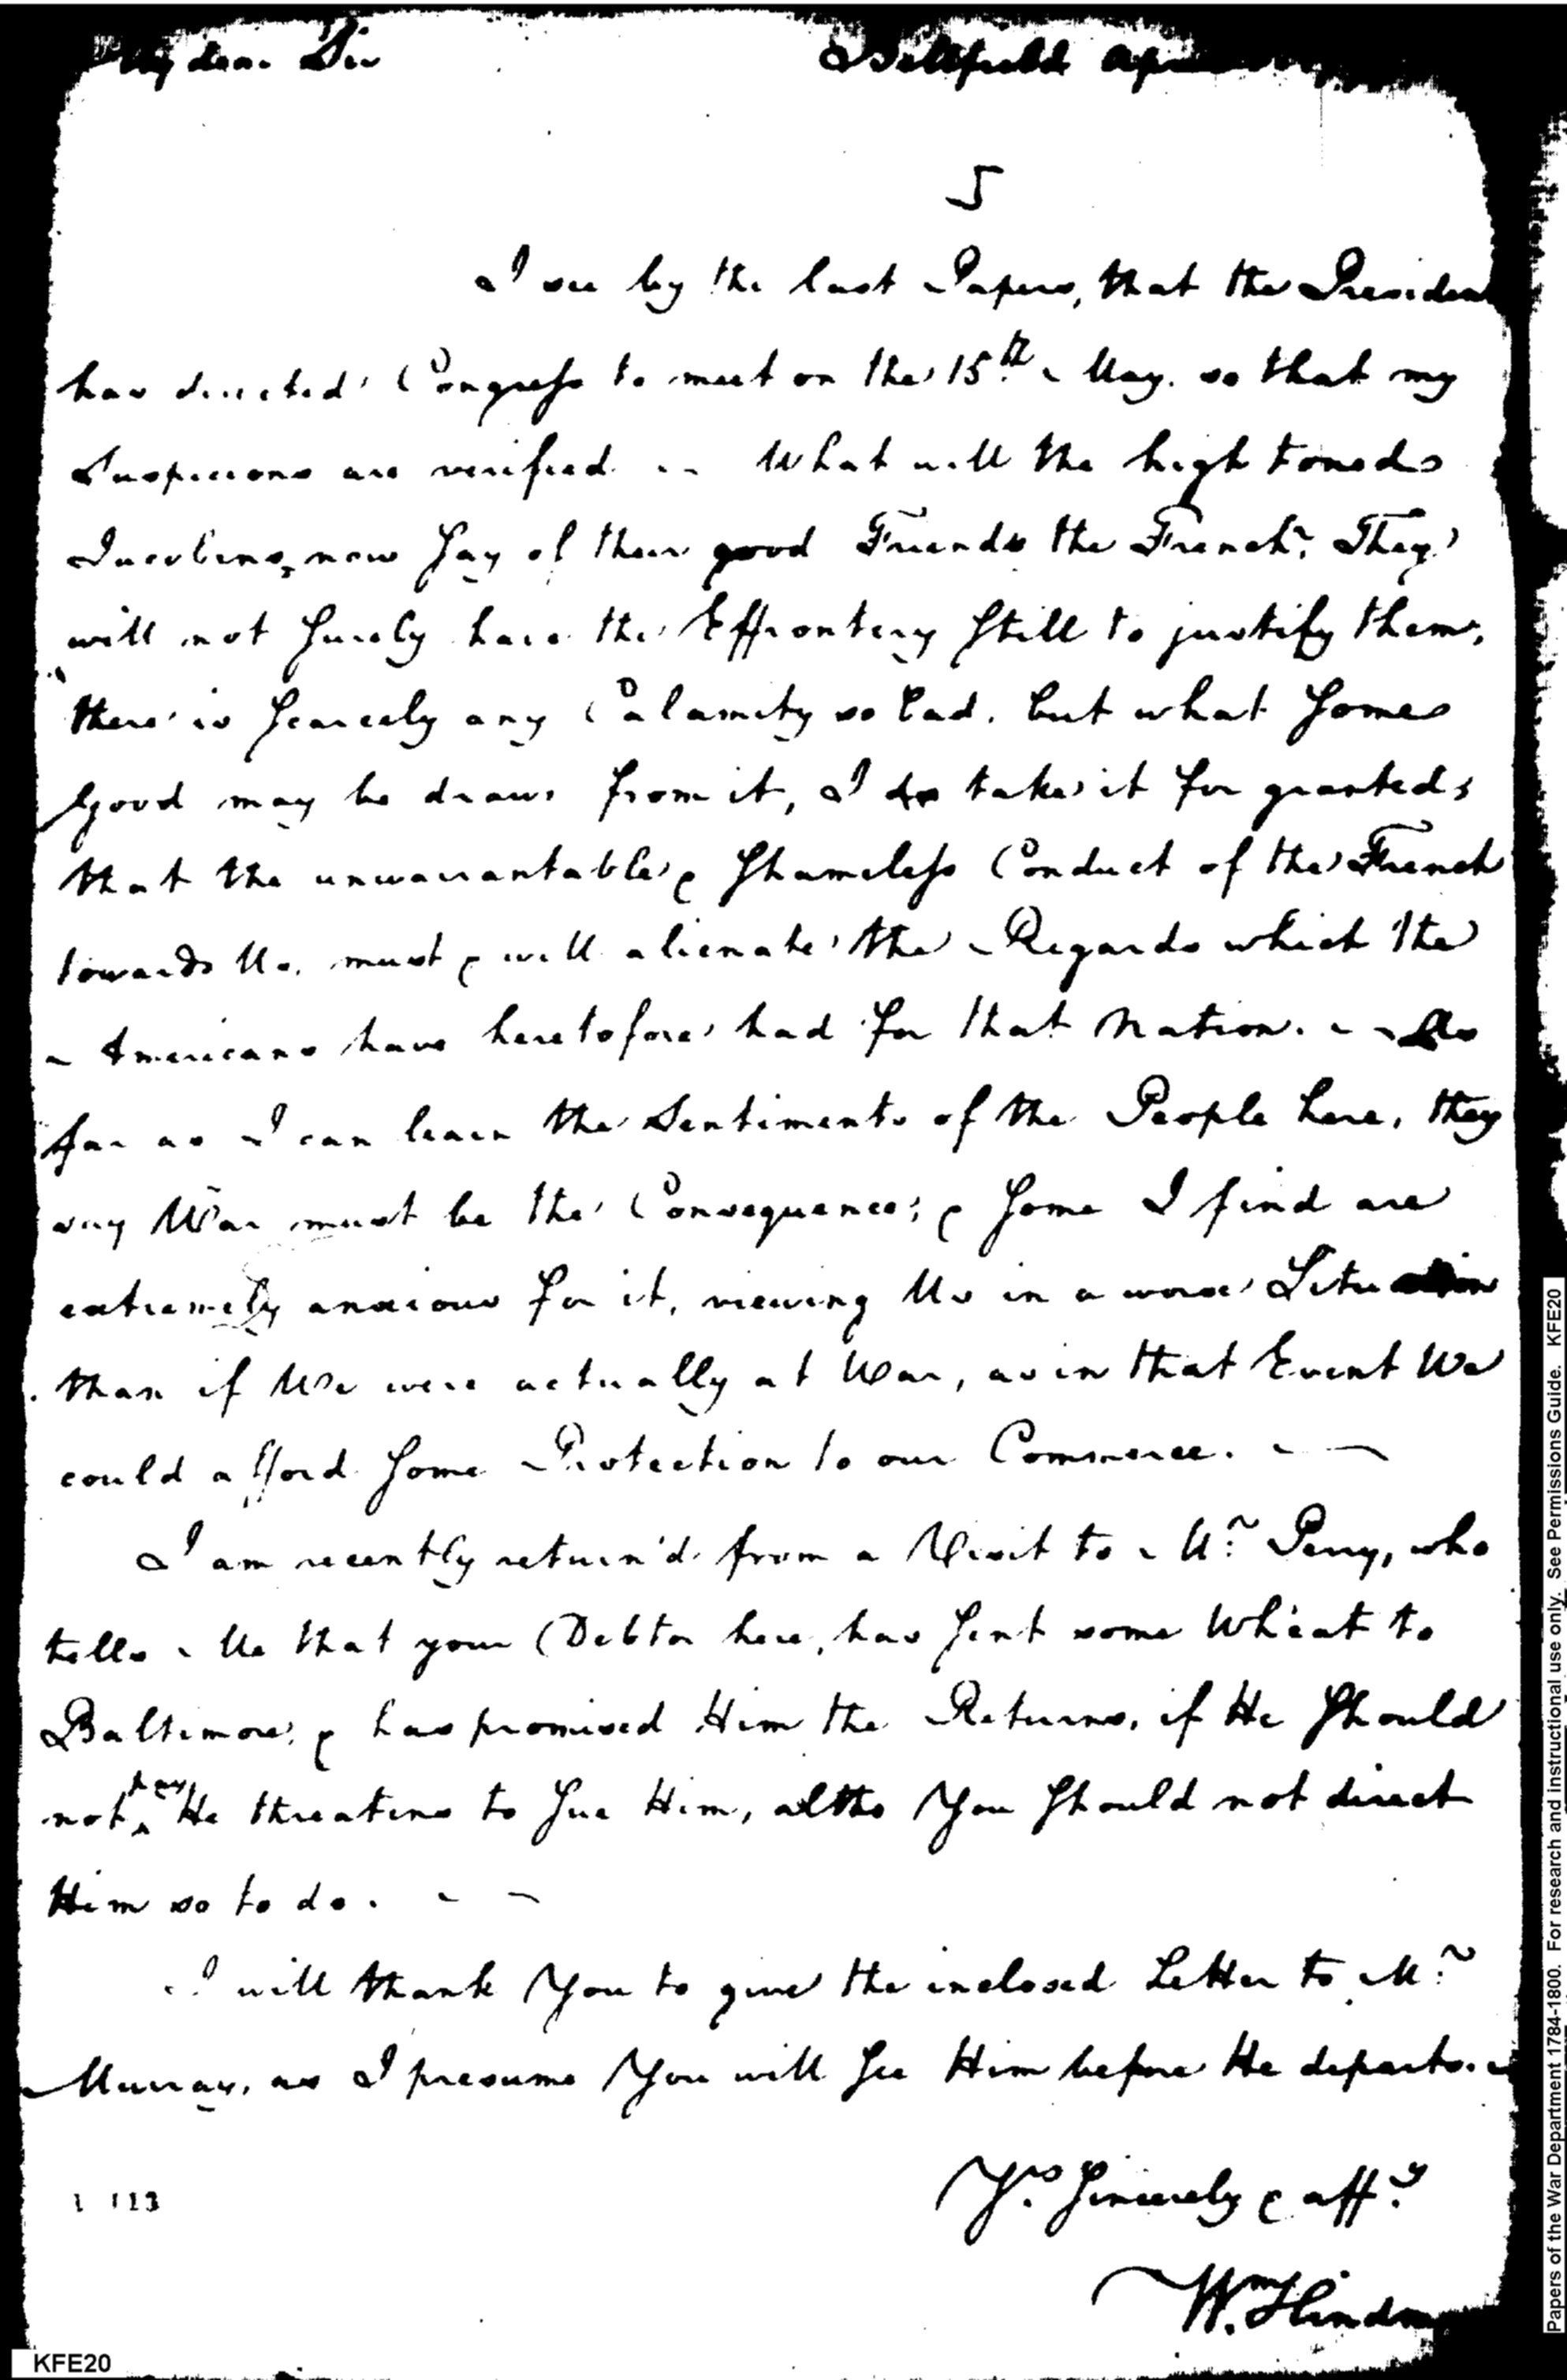 My dear Sir Bellfield Ap
5
I see by the last Papers, that the President
has directed Congress to meet on the 15th. May. so that my
Suspicions are verified. What will the high toned
Jacobins, now say of their good Friends the French? They
will not surely have the Effrontery still to justify them,
there is scarcely any Calamity so bad, but what some
good may be drawn from it, I do take it for granted,
that the unwarrantable & shameless Conduct of the French
towards Us, must & will alienate the Regards which the
Americans have heretofore had for that Nation. - - As
far as I can learn the Sentiments of the People here, they
say War must be the Consequence; & some I find are
extremely anxious for it, viewing Us in a worse Situation
than if We were actually at War, as in that Event We
could afford some Protection to our Commerce. -
I am recently return'd from a Visit to Mr. Perry, who
tells Me that your Debtor here, has sent some Wheat to
Baltimore, & has promised Him the Returns, if He should
not pay He threatens to sue Him, altho You should not direct
Him so to do. - -
I will thank You to give the inclosed Letter to Mr.
Murray, as I presume You will see Him before He departs. -
Yrs. sincerely & affy.
Wm. Hindm
1 113
KFE20
Papers of the War Department 1784-1800. For research and instructional use only. See Permissions Guide. KFE20